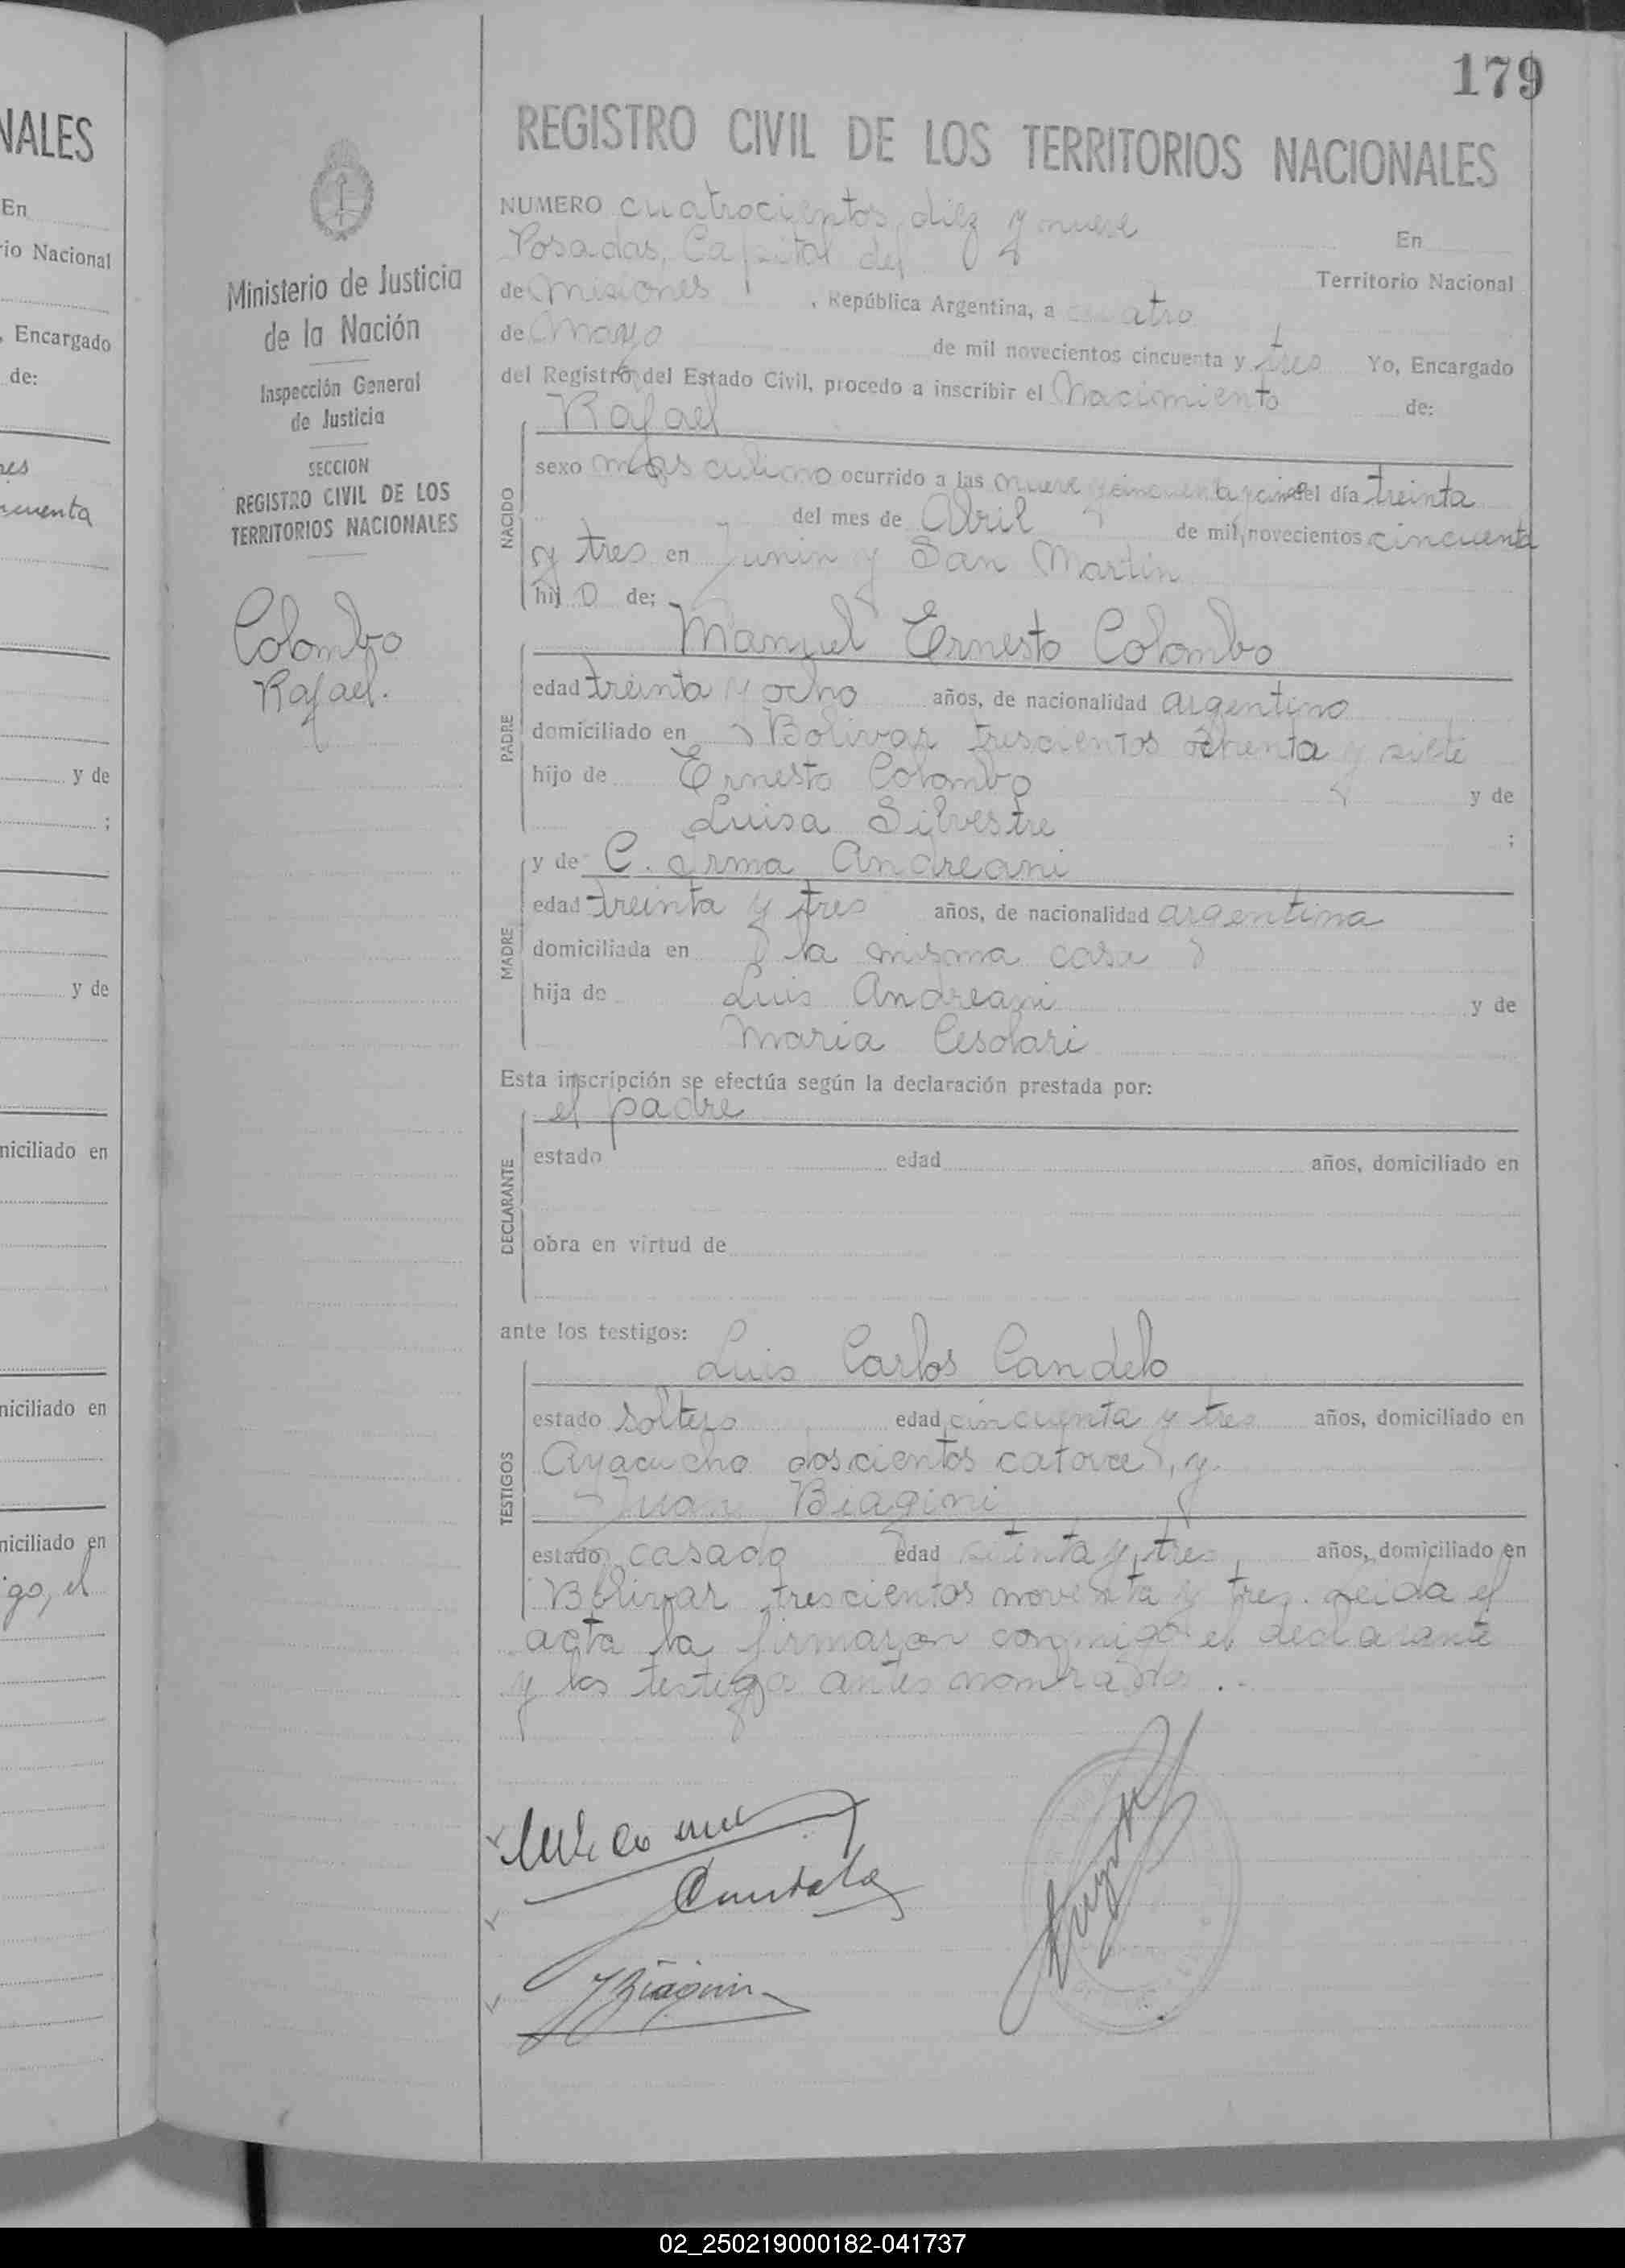 NALES
En
rio Nacional
, Encargado
de:
cuenta
y de
;
y de
miciliado en
niciliado en
niciliado en
go, el
Ministerio de Justicia
de la Nación
Inspección General
de Justicia
SECCION
REGISTRO CIVIL DE LOS
TERRITORIOS NACIONALES
Colombo
Rafael.
179
REGISTRO CIVIL DE LOS TERRITORIOS NACIONALES
NUMERO cuatrocientos diez y nueve
En
Posadas, Capital del
Territorio Nacional
de Misiones, República Argentina, a cuatro
de Mayo de mil novecientos cincuenta y tres Yo, Encargado
del Registro del Estado Civil, procedo a inscribir el Nacimiento de:
Rafael
NACIDO
sexo masculino ocurrido a las nueve y cincuenta y cinco del día treinta
del mes de Abril de mil novecientos cincuenta
y tres en Junin y San Martin
hij o de;
Manuel Ernesto Colombo
PADRE
edad treinta y ocho años, de nacionalidad argentino
domiciliado en Bolivar trescientos ochenta y siete
hijo de Ernesto Colombo y de
Luisa Silvestre ;
y de C. Irma Andreani
MADRE
edad treinta y tres años, de nacionalidad argentina
domiciliada en la misma casa
hija de Luis Andreani y de
Maria Cesolari
Esta inscripción se efectúa según la declaración prestada por:
el padre
DECLARANTE
estado edad años, domiciliado en
obra en virtud de
ante los testigos:
Luis Carlos Candelo
TESTIGOS
estado soltero edad cincuenta y tres años, domiciliado en
Ayacucho doscientos catorce, y
Juan Biagini
estado casado edad setenta y tres, años, domiciliado en
Bolivar trescientos noventa y tres. Leida el
acta la firmaron conmigo el declarante
y los testigos antes nombrados..
Candelo
JBiagini
02_250219000182-041737